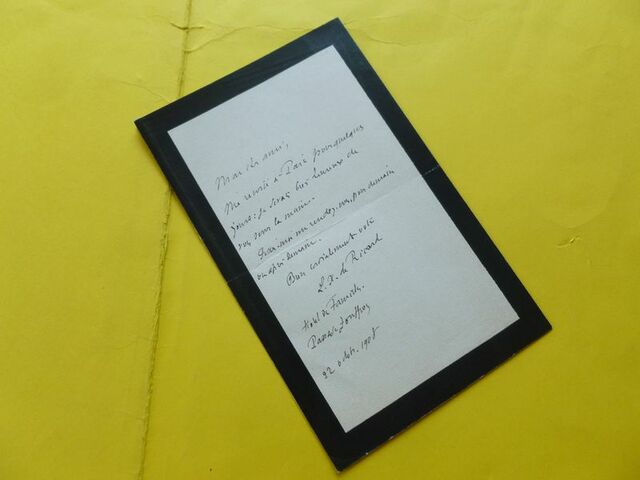 Mon cher ami,
Me voici à Paris pour quelques
jours : je serai très heureux de
vous serrer la main.
Fixez-moi un rendez-vous, pour demain
ou après demain.
Bien cordialement votre
L. X. de Ricard
Hotel de
Passage Jouffroy
22 octb. 1908